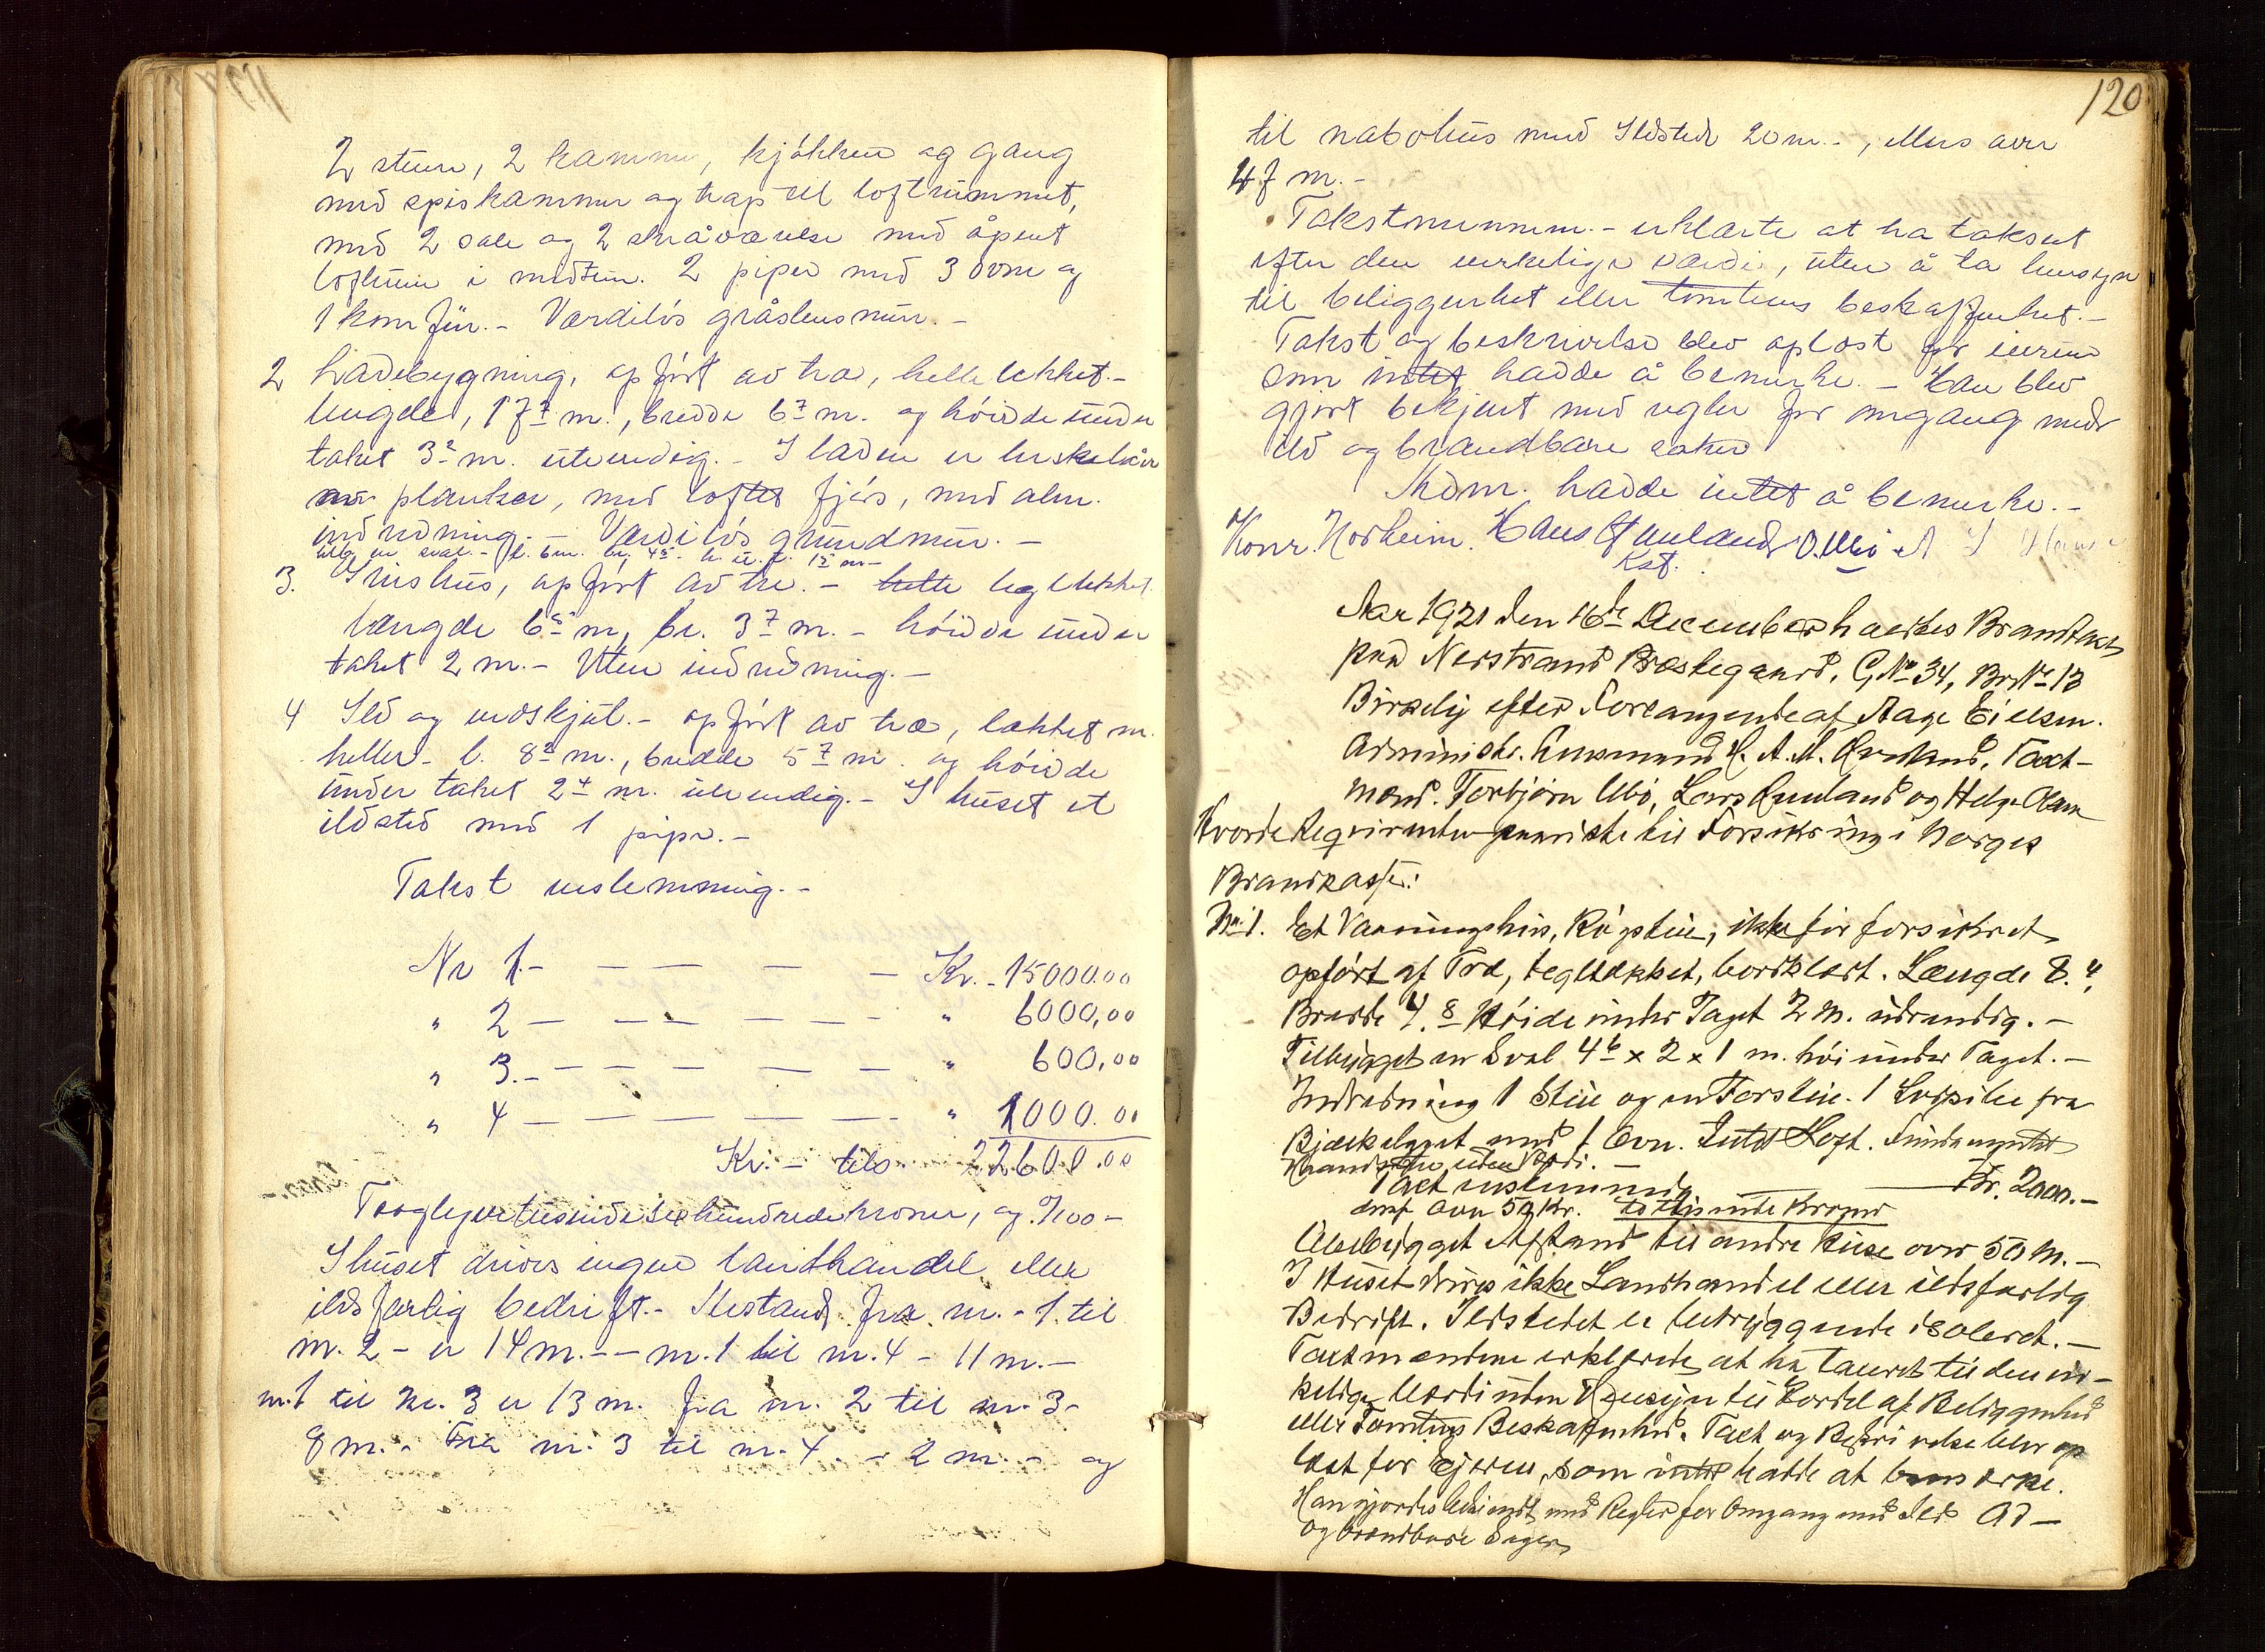 2 stuer, 2 kammer, kjøkken og gang
med spiskammer og trap til loftrummet,
med 2 sale og 2 skråværelse med åpent
loftrum i midten. 2 piper med 3 ovne og
1 komfür. - Værdiløs gråstensmur. -
2 Ladebygning, opført av træ, helletekket. -
lengde, 17⁷ m., bredde 6⁷ m. og høidde under
taket 3² m. utvendig. - I laden er
planker, med loftet fjøs, med alm.
indredning. - Værdiløs grundmur. -
tilb. en sval. - l. 6 m. br. 4⁵ h. u. t. 1⁵ m -
3. Grishus, opført av tre. - helle tegltekket
Længde 6⁵ m, br. 3⁷ m. - høidde under
taket 2 m. - Uten indredning. -
4 Ild og vedskjul. - opført av træ, takket m.
heller - l. 8² m., bredde 5⁷ m. og høidde
under taket 2⁴ m. utvendig. - I huset et
ildsted med 1 pipe. -
Takst enstemmig. -
Nr 1. - — — — — Kr. - 15000.00
" 2 — — — — — " 6000,00
" 3. - — — — — — " 600,00
" 4 — — — — — " 1000.00
Kr. - tils. 22600.00
Toogtyvetusindesekshundrede kroner, og 0/100 -
I huset drives ingen landhandel eller
ildsfarlig bedrift. - Avstand fra nr. - 1. til
nr. 2 - er 14 m. - - nr. 1 til nr. 4 - 11 m. -
nr. 1 til nr. 3 er 13 m. fra nr. 2 til nr. 3 -
8 m. - Fra nr. 3 til nr. 4. - 2 m. - og
120
til nabohus med Ildsted 20 m. - , ellers over
47 m. -
Takstmennene. - erklærte at ha taksert
efter den virkelige værdi, uten å ta hensyn
til beliggenhet eller tomtens beskaffenhet. -
Takst og beskrivelse blev oplæst for eieren
som intet hadde å bemerke. - Han blev
gjort bekjent med regler for omgang med
ild og brandbare saker
Skdm. hadde intet å bemerke. -
Konr. Norheim. Hans O. Ubø
Kst.
Aar 1921 den 16de December holdtes Brandtakst
paa Nerstrand Prestegaard, G№ 34, Br№ 13
efter Forlangende af Aage Eielsen.
Administr. Lensmand H. A. M. Taxt-
mænd. Torbjørn Ubø, Lars og Helge
Hvorda Reqvirenten paaviste til Forsikring i Norges
Brandkasse:
№ 1. Et Vaaningshus, Røgstue, ikke før forsikret
opført af Træ, tegltækket, bordklædt. Længde 8.⁴,
Bredde 4.⁸ Høide under Taget 2 m. udvendig. -
Tilbygget en Sval 4⁶ x 2 x 1 m. høi under Taget. -
Indredning 1 Stue og en Forstue. 1 fra
med 1 Ovn. Intet Loft. Fundamentet
uden Værdi. -
Taxt enstemmig — — Kr. 2000. -
deraf Ovn 50 Kr. totusinde Kroner
Afstand til andre Huse over 50 m. -
I Huset drives ikke Landhandel eller ildsfarlig
Bedrift. Ildstedet er betryggende isoleret. -
Taxtmændene erklærede at ha taxeret til den vir-
kelige Værdi uden Hensyn til Fordel af Beliggenhed
eller Tomtens Beskaffenhed. Taxt og Beskrivelse blev op
læst for Ejeren, som intet hadde at bemærke.
Han gjordes bekjendt med Regler for Omgang med Ild Ad -
og brandbare Sager